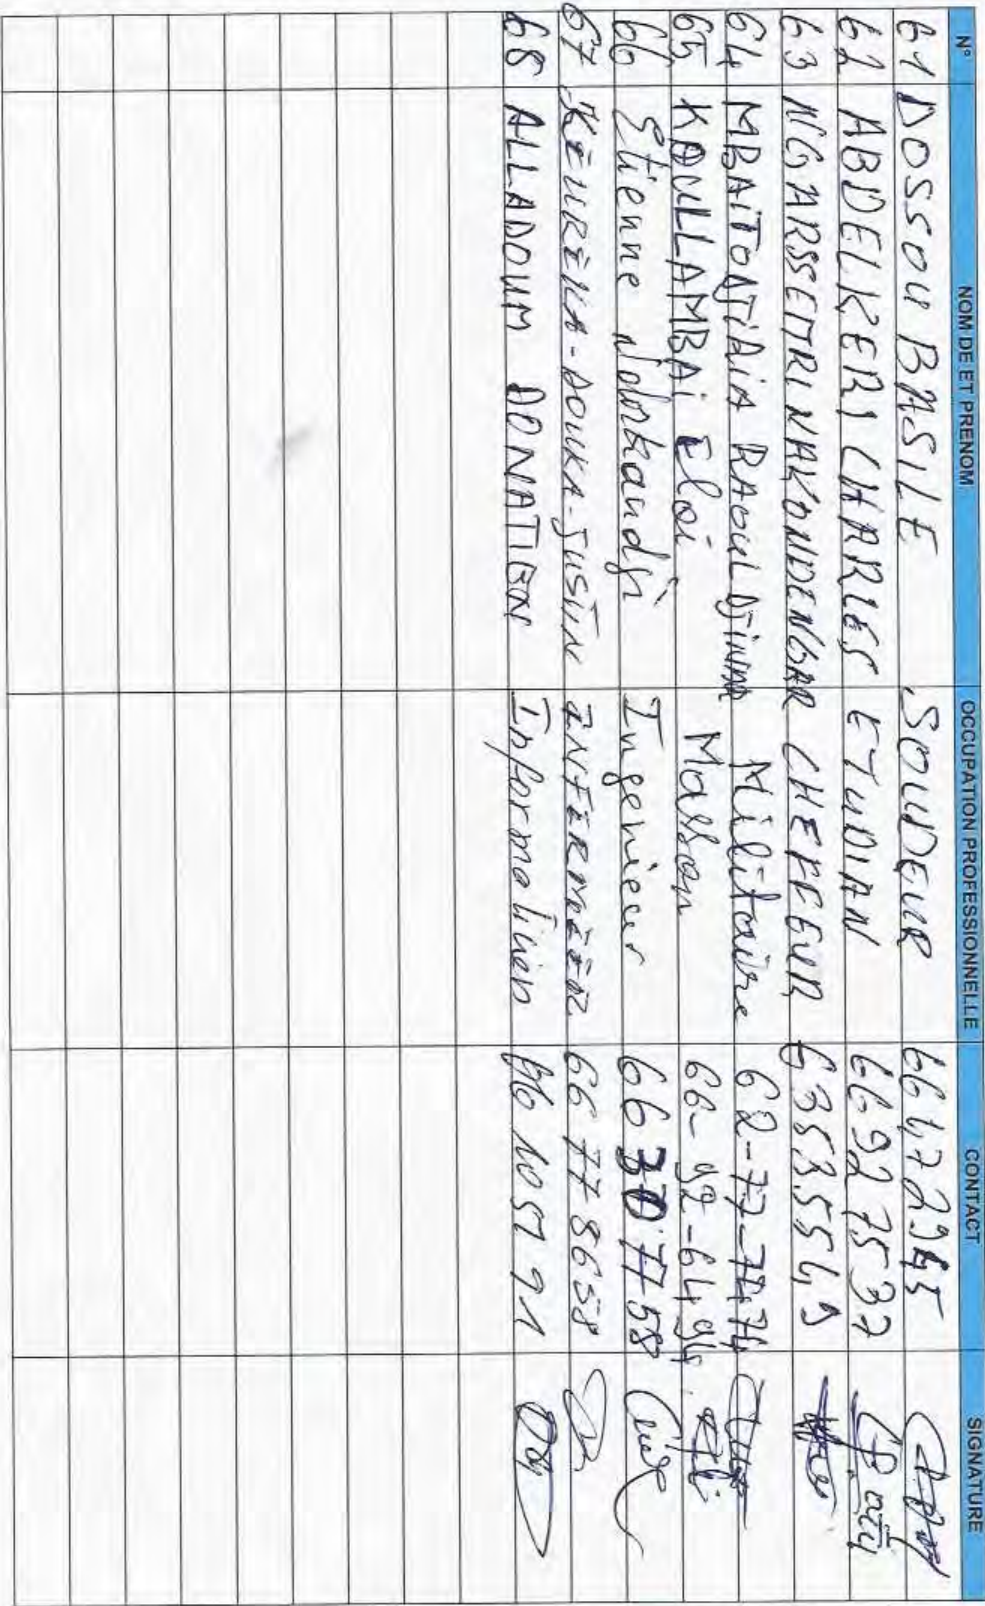 N° NOM DE ET PRENOM OCCUPATION PROFESSIONNELLE CONTACT SIGNATURE
61 DOSSOU BASILE SOUDEUR 66472945
62 ABDELKERI CHARLES ETUDIAN 66927537
63 NGARSSEMRI NAKONDENGAR CHEFFEUR 63535549
64 MBAITODJIDIA RAOUL DJINNA Militaire 62-77-74-74
65 KOULLAMBAi Eloi Masson 66-92-64-94
66 Etienne Ndorkaudji Ingenieur 66307758
67 KEUREUA-DOUKA-JUSTIN INFERMÉER 66778658
68 ALLADOUM DONATIEN Informaticien 66105791